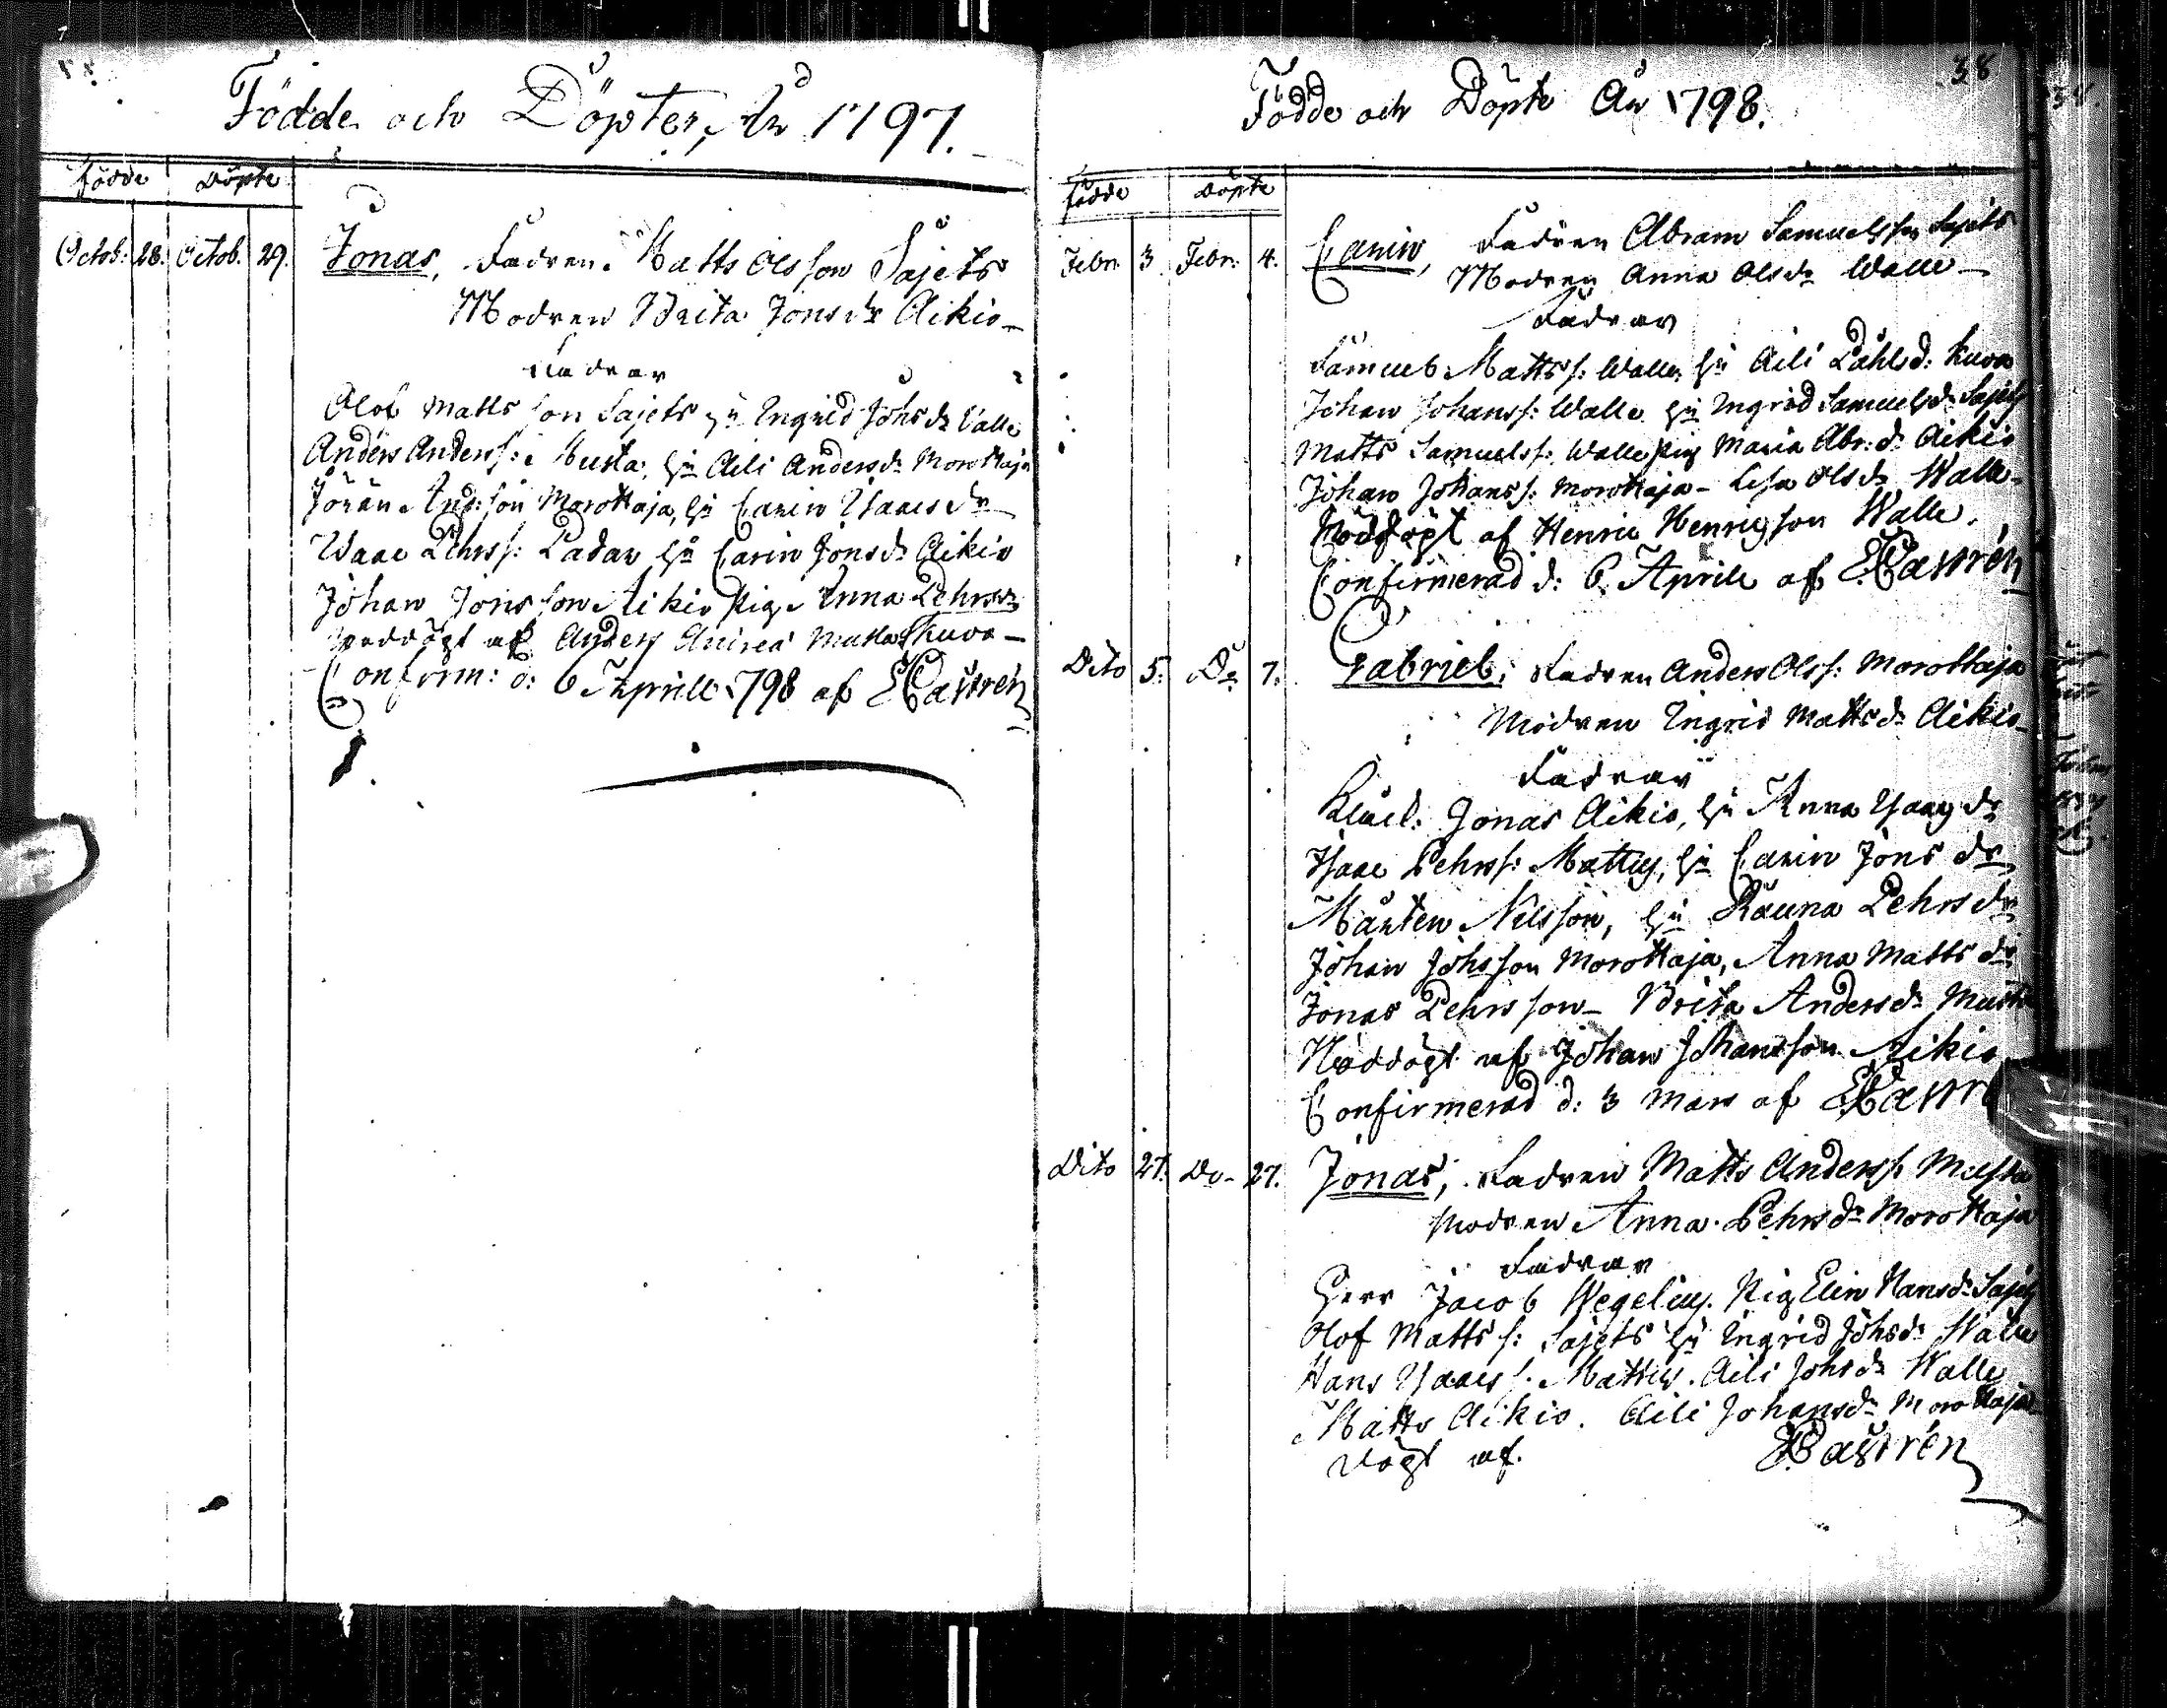 Födde och Döpter, År 1797.
Födde Döpte
Octob: 28. Octob. 29. Jonas, Fadren Matts Olsson Sajets
Modren Brita Jonsdr Aikio
Fadrar
Olof Mattsson Sajets hu Ingrid Johsdr Valle
Anders Anderss: Musta, hu Aili Andersdr Morottaja
Jöran Anderson Morottaja, hu Carin Isaacsdr
Isaac Pehrss: Padar hu Carin Jonsd. Aikio
Johan Jonsson Aikio Pig. Anna Pehrsdr
Nöddöpt af Anders Musta Kuva
Confirm: d: 6 Aprill 1798 af ECastrén
38
Födde och Döpte År 1798.
födde Döpte
Febr. 3 Febr. 4. Carin, Fadren Abram Samuelsson Sajets
Modren Anna Olsdr Walle
Fadrar
Samuel Mattss: Walle, hu Aili Påhlsd: Kuva
Johan Johanss: Walle hu Ingrid Samuelsdr Sajets
Matts Samuelss: Walle Pig Maria Abr: d. Aikio
Johan Johanss: Morottaja - Lisa Olsdr Walle
Nöddöpt af Henric Henricsson Walle.
Confirmerad d: 6 Aprill af ECastrén
Dito 5. Do 7. Gabriel, Fadren Anders Olss: Morottaja
Modren Ingrid Mattsdr Aikio
Fadrar
Jonas Aikio, hu Anna Isaacsdr
Isaac Pehrss: Mattus, hu Carin Jonsdr
Mårten Nilsson, hu Rauna Pehrsdr
Johan Johsson Morottaja, Anna Mattsdr
Jonas Pehrsson - Brita Andersdr Musta
Nöddöpt af Johan Johansson Aikio
Confirmerad d: 3 Mars af ECastré
Dito 27. Do - 27. Jonas, Fadren Matts Anderss. Musta
Modren Anna Pehrsdr Morottaja
Fadrar
Herr Jacob Wegelius. Pig Elin Hansdr Sajets
Olof Mattss: Sajets hu Ingrid Johsdr Walle
Hans Isaacss. Mattus. Aili Johsdr Walle
Matts Aikio. Aili Johansdr Morottaja
Döpt af. ECastrén